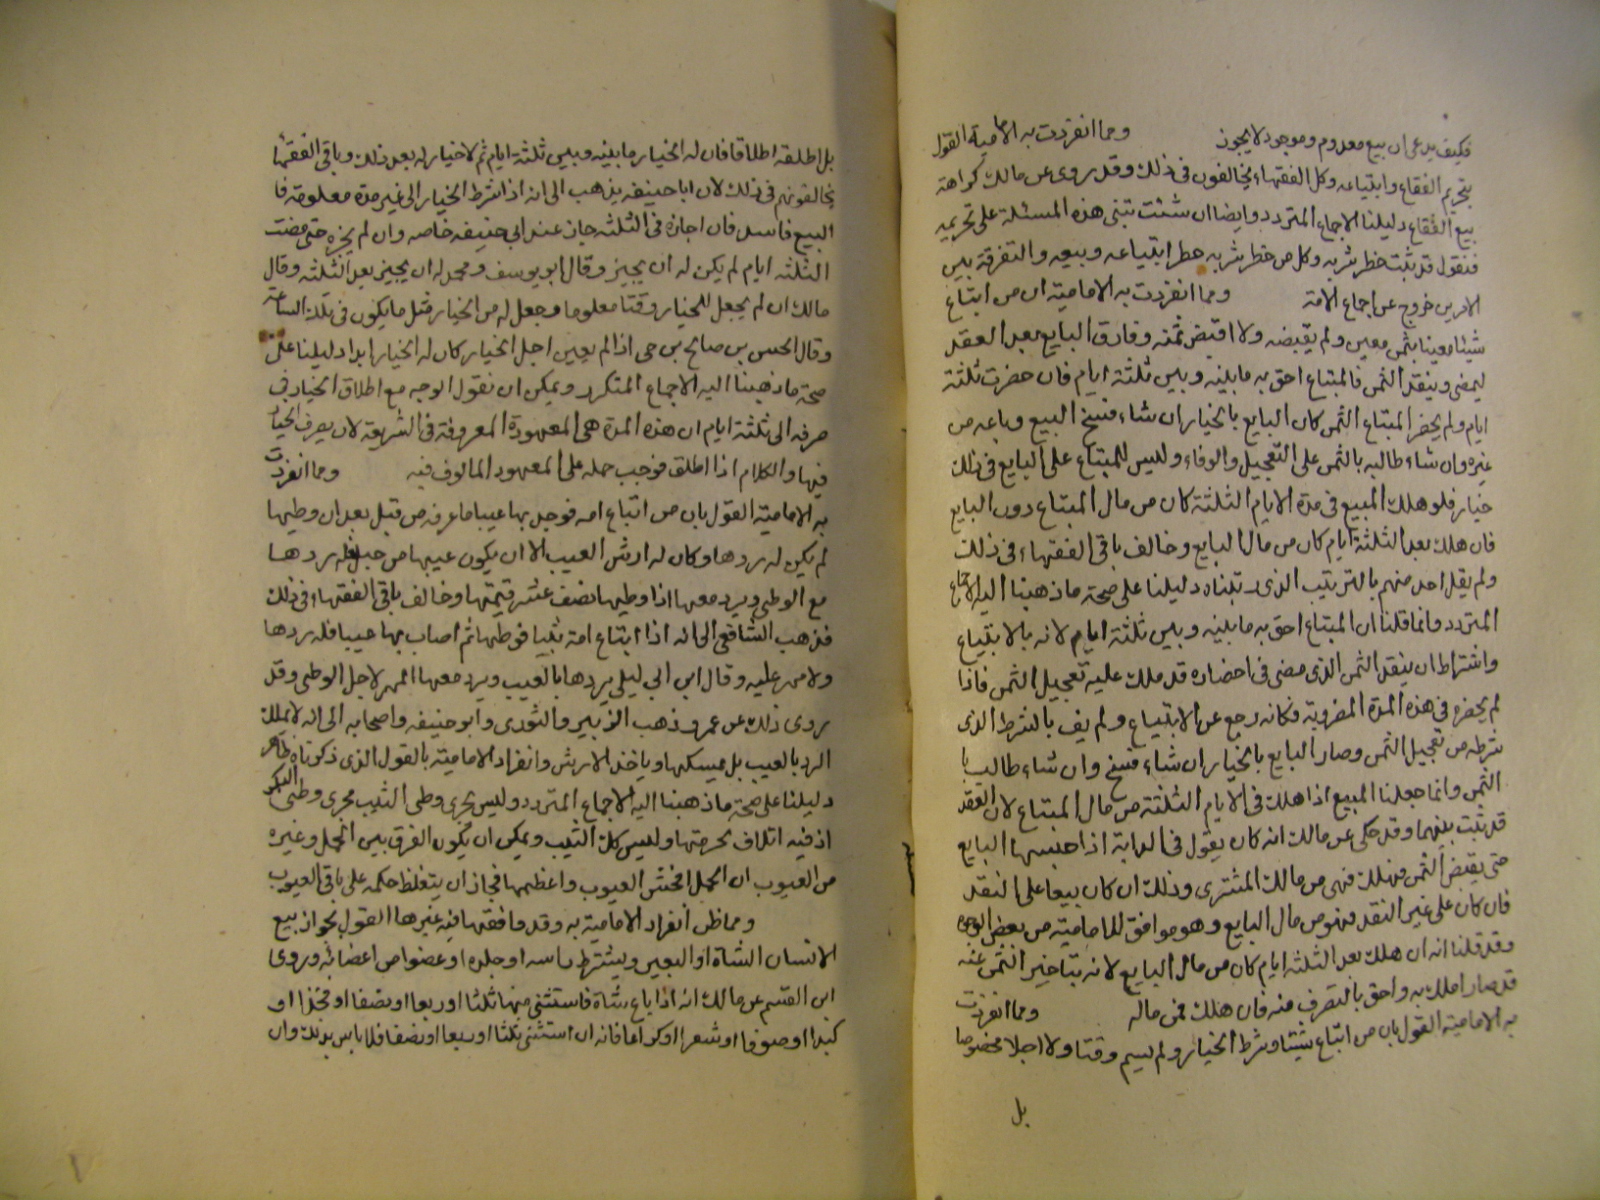 فكيف يدعى ان بيع معدوم وموجود لا يجوز ومما انفردت به الامامية القول
بتحريم الفقاع وابتياعه وكل الفقهاء يخالفون فى ذلك وقد روى عن مالك كراهة
بيع الفقاع دليلنا الاجماع المتردد وايضا ان شئت تبنى هذه المسئلة على تحريمه
فنقول قد ثبت حظر شربه وكل من حظر شربه حظر ابتياعه وبيعه والتفرقة بين
الامرين خروج عن اجماع الامة ومما انفردت به الامامية ان من ابتاع
شيئا معينا بثمن معين ولم يقبضه ولا اقبض ثمنه وفارق البايع بعد العقد
ليمضى وينقد الثمن فالمبتاع احق به ما بينه وبين ثلثة ايام فان حضرت ثلثة
ايام ولم يحضر المبتاع الثمن كان البايع بالخيار ان شاء فسخ البيع وباعه من
غيره وان شاء طالبه بالثمن على التعجيل والوفاء وليس للمبتاع على البايع فى ذلك
خيار فلو هلك المبيع فى مدة الايام الثلثة كان من مال المبتاع دون البايع
فان هلك بعد الثلثة ايام كان من مال البايع وخالف باقى الفقهاء فى ذلك
ولم يقل احد منهم بالترتيب الذى رتبناه دليلنا على صحة ما ذهبنا اليه الاجماع
المتردد وانما قلنا ان المبتاع احق به ما بينه وبين ثلثة ايام لانه بالابتياع
واشتراط ان ينقد الثمن الذى مضى فى احضاره قد ملك عليه تعجيل الثمن فاذا
لم يحضره فى هذه المدة المضروبة فكانه رجع عن الابتياع ولم يف بالشرط الذى
شرطه من تعجيل الثمن وصار البايع بالخيار ان شاء فسخ وان شاء طالب با
الثمن وانما جعلنا المبيع اذا هلك فى الايام الثلثة من مال المبتاع لان العقد
قد ثبت بينهما وقد حكى عن مالك انه كان يقول فى الدابة اذا حبسها البايع
حتى يقبض الثمن فهلك فهى من مالك المشترى وذلك ان كان بيعا على النقد
فان كان على غير النقد فهو من مال البايع وهو موافق للامامية من بعض الوجوه
وقد قلنا انه ان هلك بعد الثلثة ايام كان من مال البايع لانه بتاخير الثمن عنه
قد صار املك به واحق بالتصرف منه فان هلك فمن ماله ومما انفردت
به الامامية القول بان من ابتاع شيئا وشرط الخيار ولم يسم وقتا ولا اجلا مخصوصا
بل
بل اطلقه اطلاقا فان له الخيار ما بينه وبين ثلثة ايام ثم لا خيار له بعد ذلك وباقى الفقها
يخالفونهم فى ذلك لان ابا حنيفه يذهب الى انه اذا شرط الخيار الى غير مدة معلومة فا
البيع فاسد فان اجازه فى الثلثه جاز عند ابى حنيفه خاصه وان لم يجزه حتى مضت
الثلثه ايام لم يكن له ان يجيز وقال ابو يوسف ومحمد له ان يجيز بعد الثلثه وقال
مالك ان لم يجعل للخيار وقتا معلوما وجعل له من الخيار مثل ما يكون فى تلك السلعة
وقال الحسن بن صالح بن حى اذا لم يعين اجل الخيار كان له الخيار ابدا دليلنا على
صحة ما ذهبنا اليه الاجماع المتكرر ويمكن ان نقول الوجه مع اطلاق الخيار فى
صرفه الى ثلثة ايام ان هذه المدة هى المعهودة المعروفة فى الشريعة لان يصرف الخيار
فيها والكلام اذا اطلق فوجب حمله على المعهود المالوف فيه ومما انفردت
به الامامية القول بان من ابتاع امه فوجد بها عيبا ما عرفه من قبل بعد ان وطيها
لم يكن له ردها وكان له ارش العيب الا ان يكون عيبها من حبل فله ردها
مع الوطى ويرد معها اذا وطيها نصف عشر قيمتها وخالف باقى الفقهاء فى ذلك
فذهب الشافعى الى انه اذا ابتاع امة ثيبا فوطيها ثم اصاب بها عيبا فله ردها
ولا مهر عليه وقال ابن ابى ليلى يردها بالعيب ويرد معها المهر لاجل الوطى وقد
روى ذلك عن عمر وذهب الزبير والثورى وابو حنيفه واصحابه الى انه لا يملك
الرد بالعيب بل يمسكها وياخذ الارش وانفراد الامامية بالقول الذى ذكرناه ظاهر
دليلنا على صحة ما ذهبنا اليه الاجماع المتردد وليس يجرى وطى الثيب مجرى وطى البكر
اذ فيه اتلاف لحرمتها وليس كك الثيب ويمكن ان يكون الفرق بين الحبل وغيره
من العيوب ان الحمل افحش العيوب واعظمها فجاز ان يتغلظ حكمه على باقى العيوب
ومما ظن انفراد الامامية به وقد وافقها فيه غيرها القول بجواز بيع
الانسان الشاة او البعير ويشترط راسه او جلده او عضوا من اعضائه وروى
ابن القسم عن مالك انه اذا باع شاة فاستثنى منها ثلثا او ربعا او نصفا او فخذا او
كبدا او صوفا او شعرا او كراعا فانه ان استثنى ثلثا او ربعا او نصفا فلا باس بذلك وان